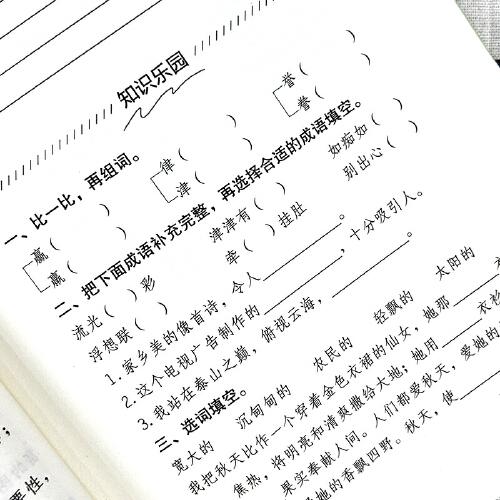 知识乐园
一、比一比，再组词。
赢（ ） 律（ ） 誉（ ）
赢（ ） 津（ ） 誊（ ）
二、把下面成语补充完整，再选择合适的成语填空。
流光（ ）彩 津津有（ ） 如痴如（ ）
浮想联（ ） 牵（ ）挂肚 别出心（ ）
1. 家乡美的像首诗，令人 。
2. 这个电视广告制作的 ，十分吸引人。
3. 我站在泰山之巅，俯视云海， 。
三、选词填空。
宽大的 沉甸甸的 农民的 轻飘的 太阳的
我把秋天比作一个穿着金色衣裙的仙女，她那 衣衫
焦热，将明亮和清爽撒给大地；她用
果实奉献人间。人们都爱秋天，爱她的
爱她的香飘四野。秋天，使
；
要性，